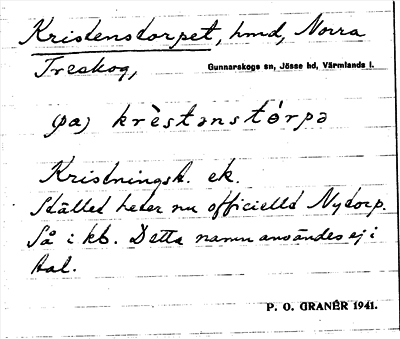 Kristenstorpet, hmd, Norra
Treskog,
Gunnarskogs sn, Jösse hd, Värmlands l.
(pa) krèstənstórpə
Kristningsk. ek.
Stället heter nu officiellt Nytorp.
Så i kb. Detta namn användes ej i
tal.
P. O. GRANÉR 1941.